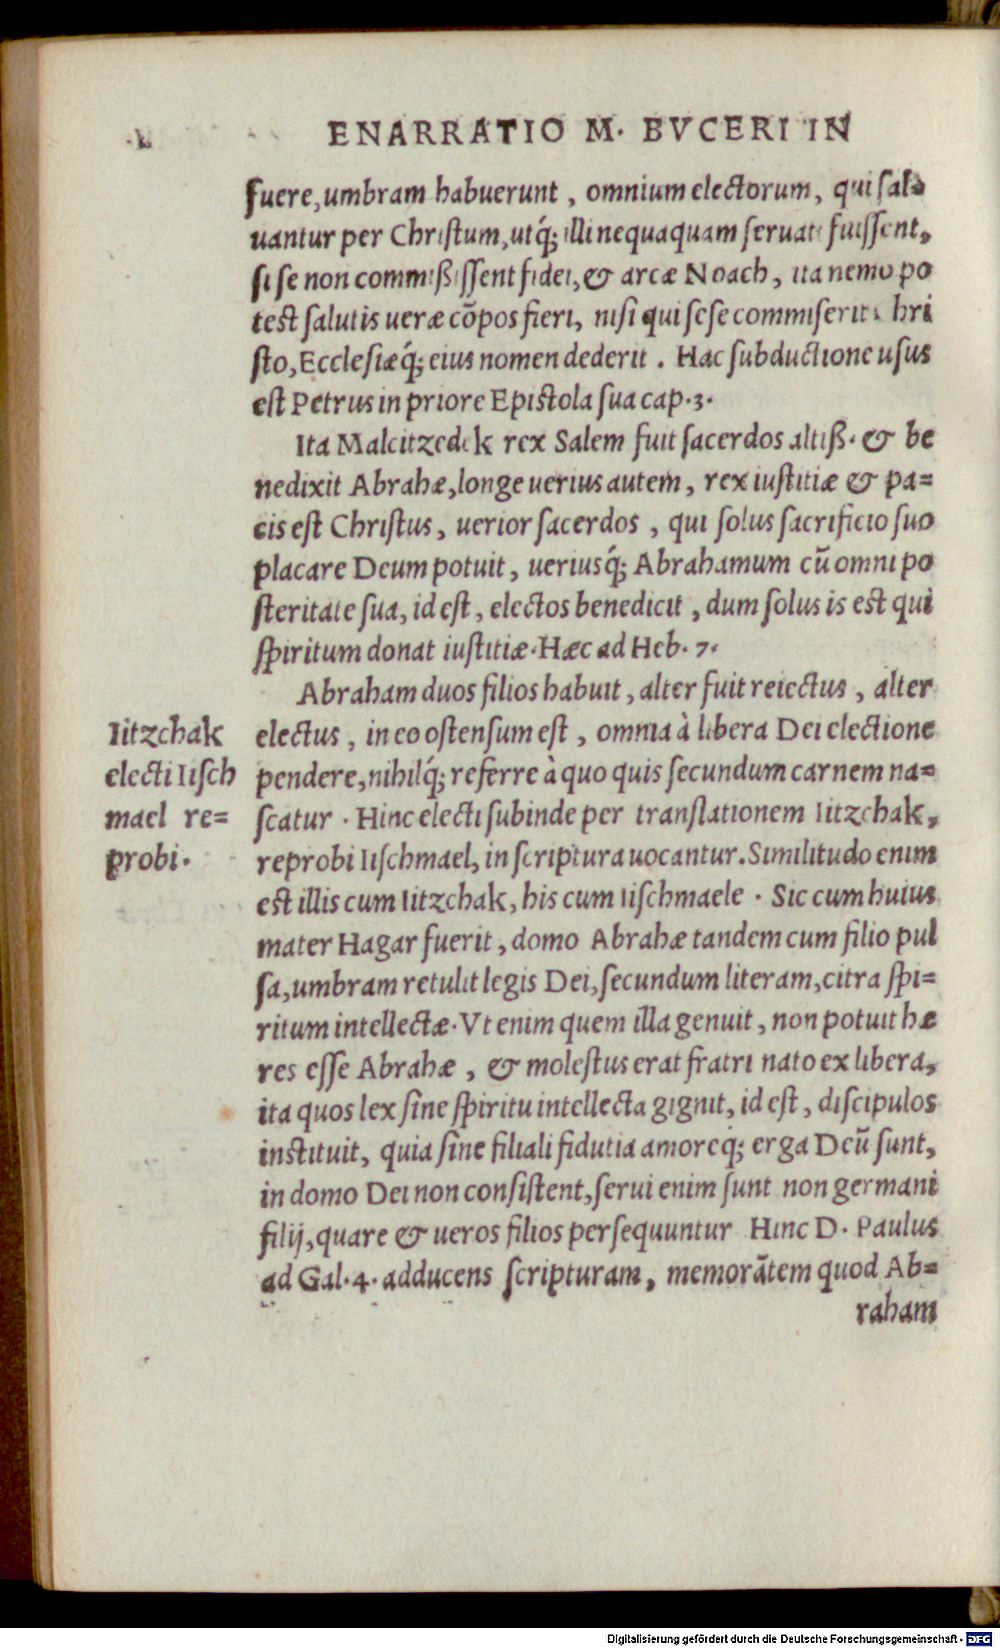 ENARRATIO M. BVCERI IN
fuere, umbram habuerunt, omnium electorum, qui sal-
uantur per Christum, utq́; illi nequaquam seruati fuissent,
si se non commißissent fidei, & arcæ Noach, ita nemo po
test salutis ueræ cõpos fieri, nisi qui sese commiserit Chri
sto, Ecclesiæq́; eius nomen dederit. Hac subductione usus
est Petrus in priore Epistola sua cap. 3.
Ita Malcitzedek rex Salem fuit sacerdos altiß. & be
nedixit Abrahæ, longe uerius autem, rex iustitiæ & pa=
cis est Christus, uerior sacerdos, qui solus sacrificio suo
placare Deum potuit, ueriusq́; Abrahamum cũ omni po
steritate sua, id est, electos benedicit, dum solus is est qui
spiritum donat iustitiæ. Hæc ad Heb. 7.
Abraham duos filios habuit, alter fuit reiectus, alter
electus, in eo ostensum est, omnia à libera Dei electione
pendere, nihilq́; referre à quo quis secundum carnem na=
scatur. Hinc electi subinde per translationem Iitzchak,
reprobi Iischmael, in scriptura uocantur. Similitudo enim
est illis cum Iitzchak, his cum Iischmaele. Sic cum huius
mater Hagar fuerit, domo Abrahæ tandem cum filio pul
sa, umbram retulit legis Dei, secundum literam, citra spi=
ritum intellectæ. Vt enim quem illa genuit, non potuit hæ
res esse Abrahæ, & molestus erat fratri nato ex libera,
ita quos lex sine spiritu intellecta gignit, id est, discipulos
instituit, quia sine filiali fidutia amoreq́; erga Deũ sunt,
in domo Dei non consistent, serui enim sunt non germani
filij, quare & ueros filios persequuntur Hinc D. Paulus
ad Gal. 4. adducens scripturam, memorãtem quod Ab=
raham
Iitzchak
electi Iisch
mael re=
probi.
Digitalisierung gefördert durch die Deutsche Forschungsgemeinschaft - DFG